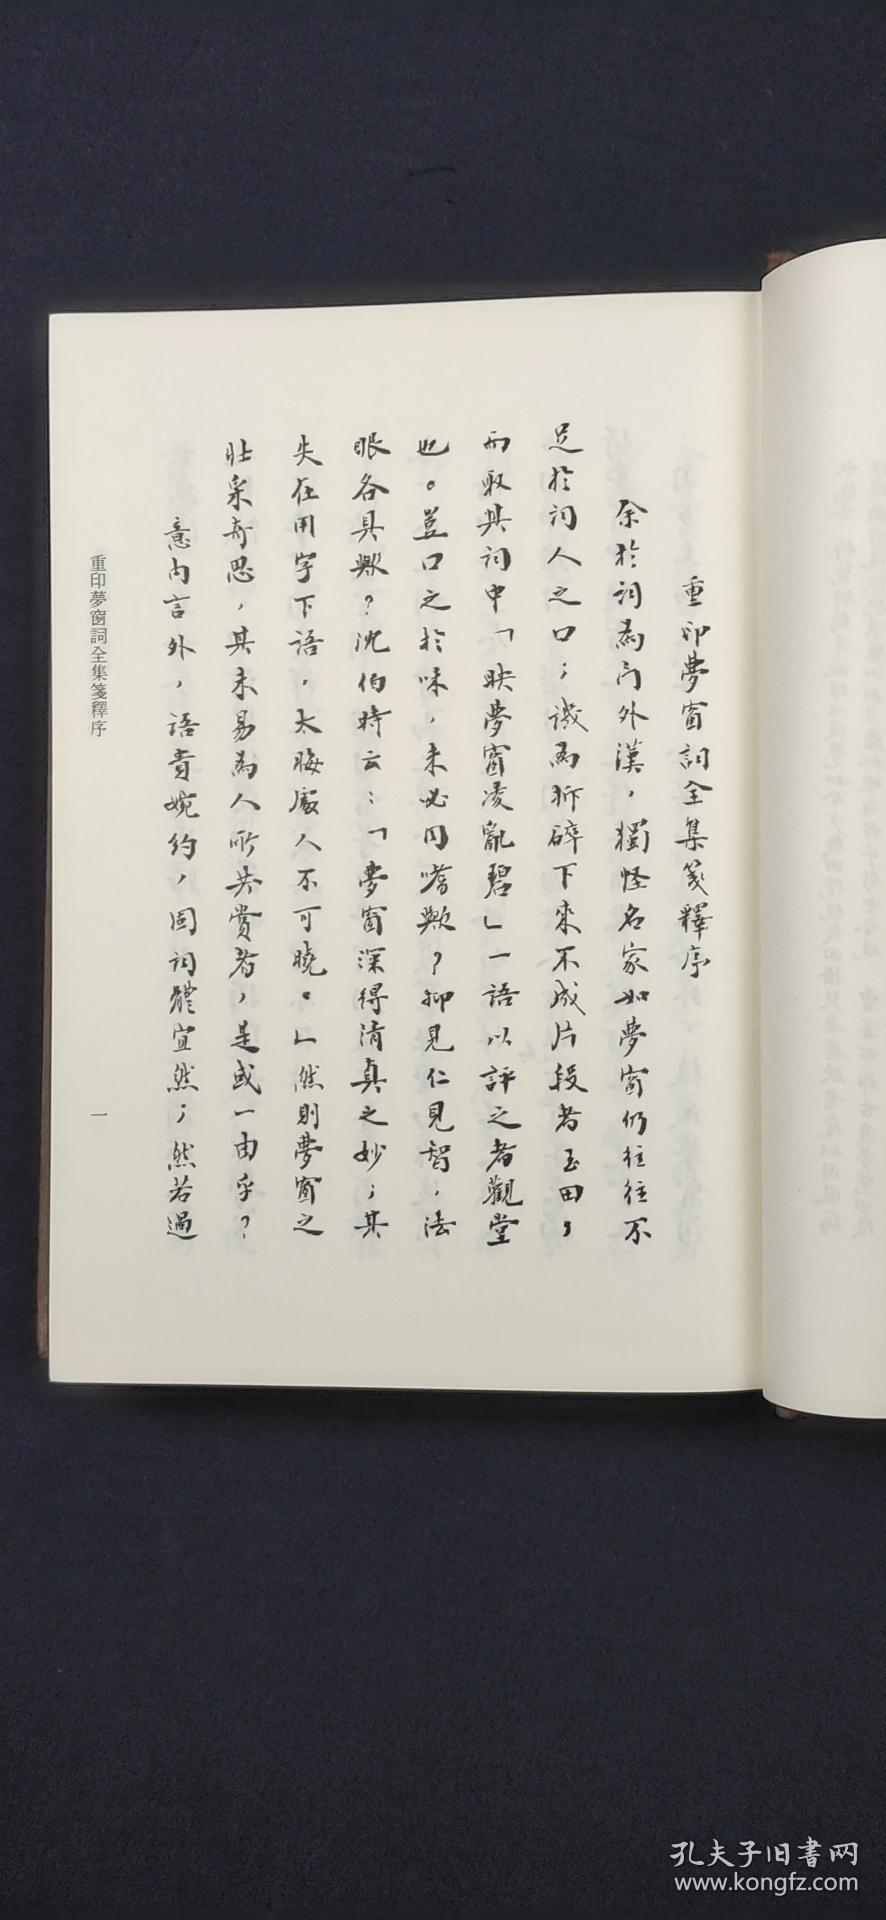 重印夢窗詞全集箋釋序
余於詞為門外漢，獨怪名家如夢窗仍往往不
足於詞人之口；譏為拆碎下來不成片段者玉田，
而取其詞中「映夢窗凌亂碧」一語以評之者觀堂
也。豈口之於味，未必同嗜歟？抑見仁見智，法
眼各具歟？沈伯時云：「夢窗深得清真之妙；其
失在用字下語，太晦處人不可曉。」然則夢窗之
壯采奇思，其未易為人所共賞者，是或一由乎？
意內言外，語貴婉約，固詞體宜然；然若過
重印夢窗詞全集箋釋序
一
孔夫子旧書网
www.kongfz.com